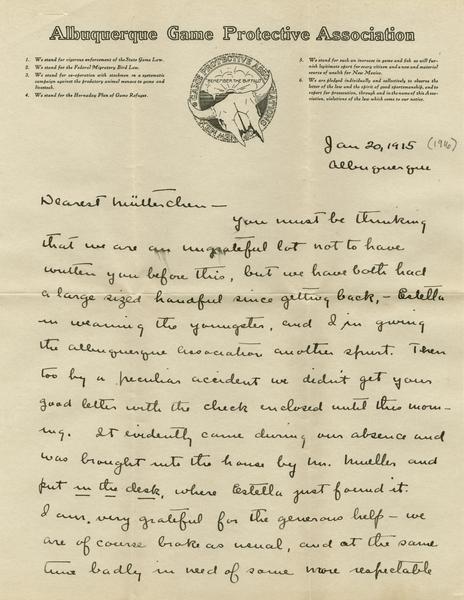 Albuquerque Game Protective Association
1. We stand for rigorous enforcement of the State Game Law.
2. We stand for the Federal Migratory Bird Law.
3. We stand for co-operation with stockmen in a systematic
campaign against the predatory animal menace to game and
livestock.
4. We stand for the Hornaday Plan of Game Refuges.
GAME PROTECTIVE ASSN
REMEMBER THE BUFFALO
NEW MEXICO
5. We stand for such an increase in game and fish as will fur-
nish legitimate sport for every citizen and a new and material
source of wealth for New Mexico.
6. We are pledged individually and collectively to observe the
letter of the law and the spirit of good sportsmanship, and to
report for prosecution, through and in the name of this Asso-
ciation, violations of the law which come to our notice.
Jan 20, 1915 (1916)
Albuquerque
Dearest Mütterchen –
You must be thinking
that we are an ungrateful lot not to have
written you before this, but we have both had
a large sized handful since getting back, – Estella
in weaning the youngster, and I in giving
the Albuquerque Association another spurt. Then
too by a peculiar accident we didn't get your
good letter with the check enclosed until this morn-
ing. It evidently came during our absence and
was brought into the house by Mr. Mueller and
put in the desk, where Estella just found it.
I am very grateful for the generous help – we
are of course broke as usual, and at the same
time badly in need of some more respectable